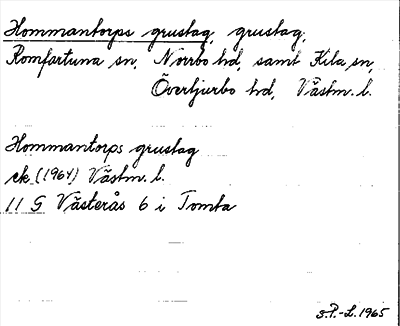 Hommantorps grustag, grustag,
Romfartuna sn, Norrbo hd, samt Kila sn,
Övertjurbo hd, Västm. l.
Hommantorps grustag
ek (1964) Västm. l.
11 G Västerås 6 i Tomta
S.P.-L. 1965